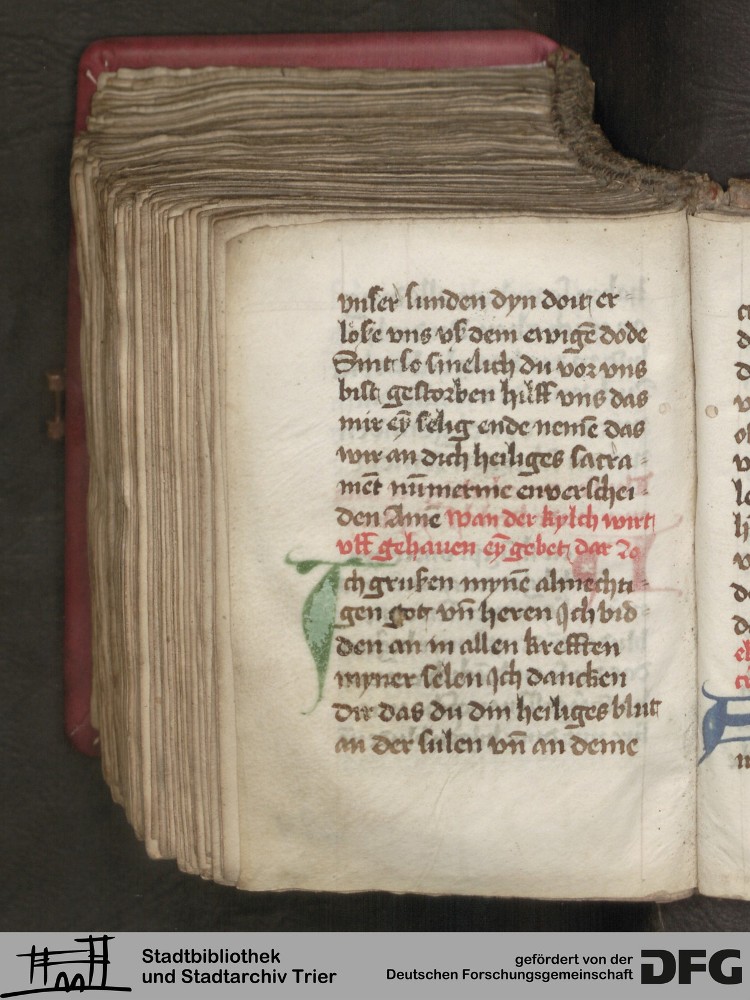 vnser sunden dyn doit er
lose vns vß dem ewigē dode
Sint so sinelich du vor vns
bist gestorben hilff vns das
mir eȳ selig ende neme das
wir an dich heiliges sacra-
mēt nūmerme enverschei-
den Amē Wan der kylch wirt
vff gehaven eȳ gebet dar zo
Ich grußen mynē almechti-
gen got vn̄ heren Ich bid
den an in allen krefften
myner selen Ich dancken
dir das du din heiliges blut
an der sulen vn̄ an deme
Stadtbibliothek
und Stadtarchiv Trier
gefördert von der
Deutschen Forschungsgemeinschaft
DFG